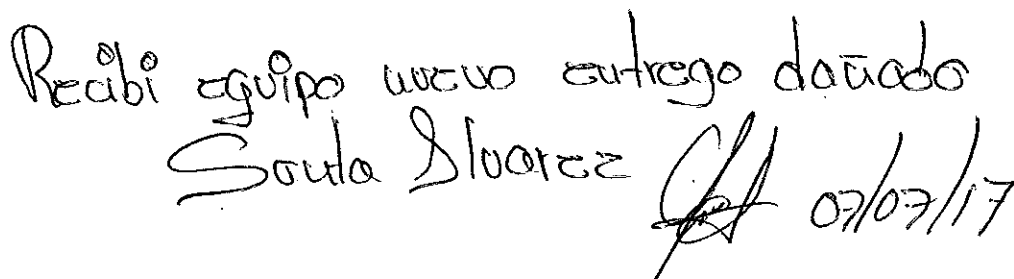 Recibi equipo nuevo entrego dañado
Santa Alvarez
07/07/17